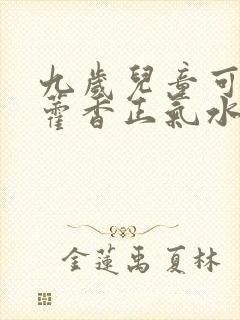 九歲兒童可
藿香正氣水
金蓮禹夏林